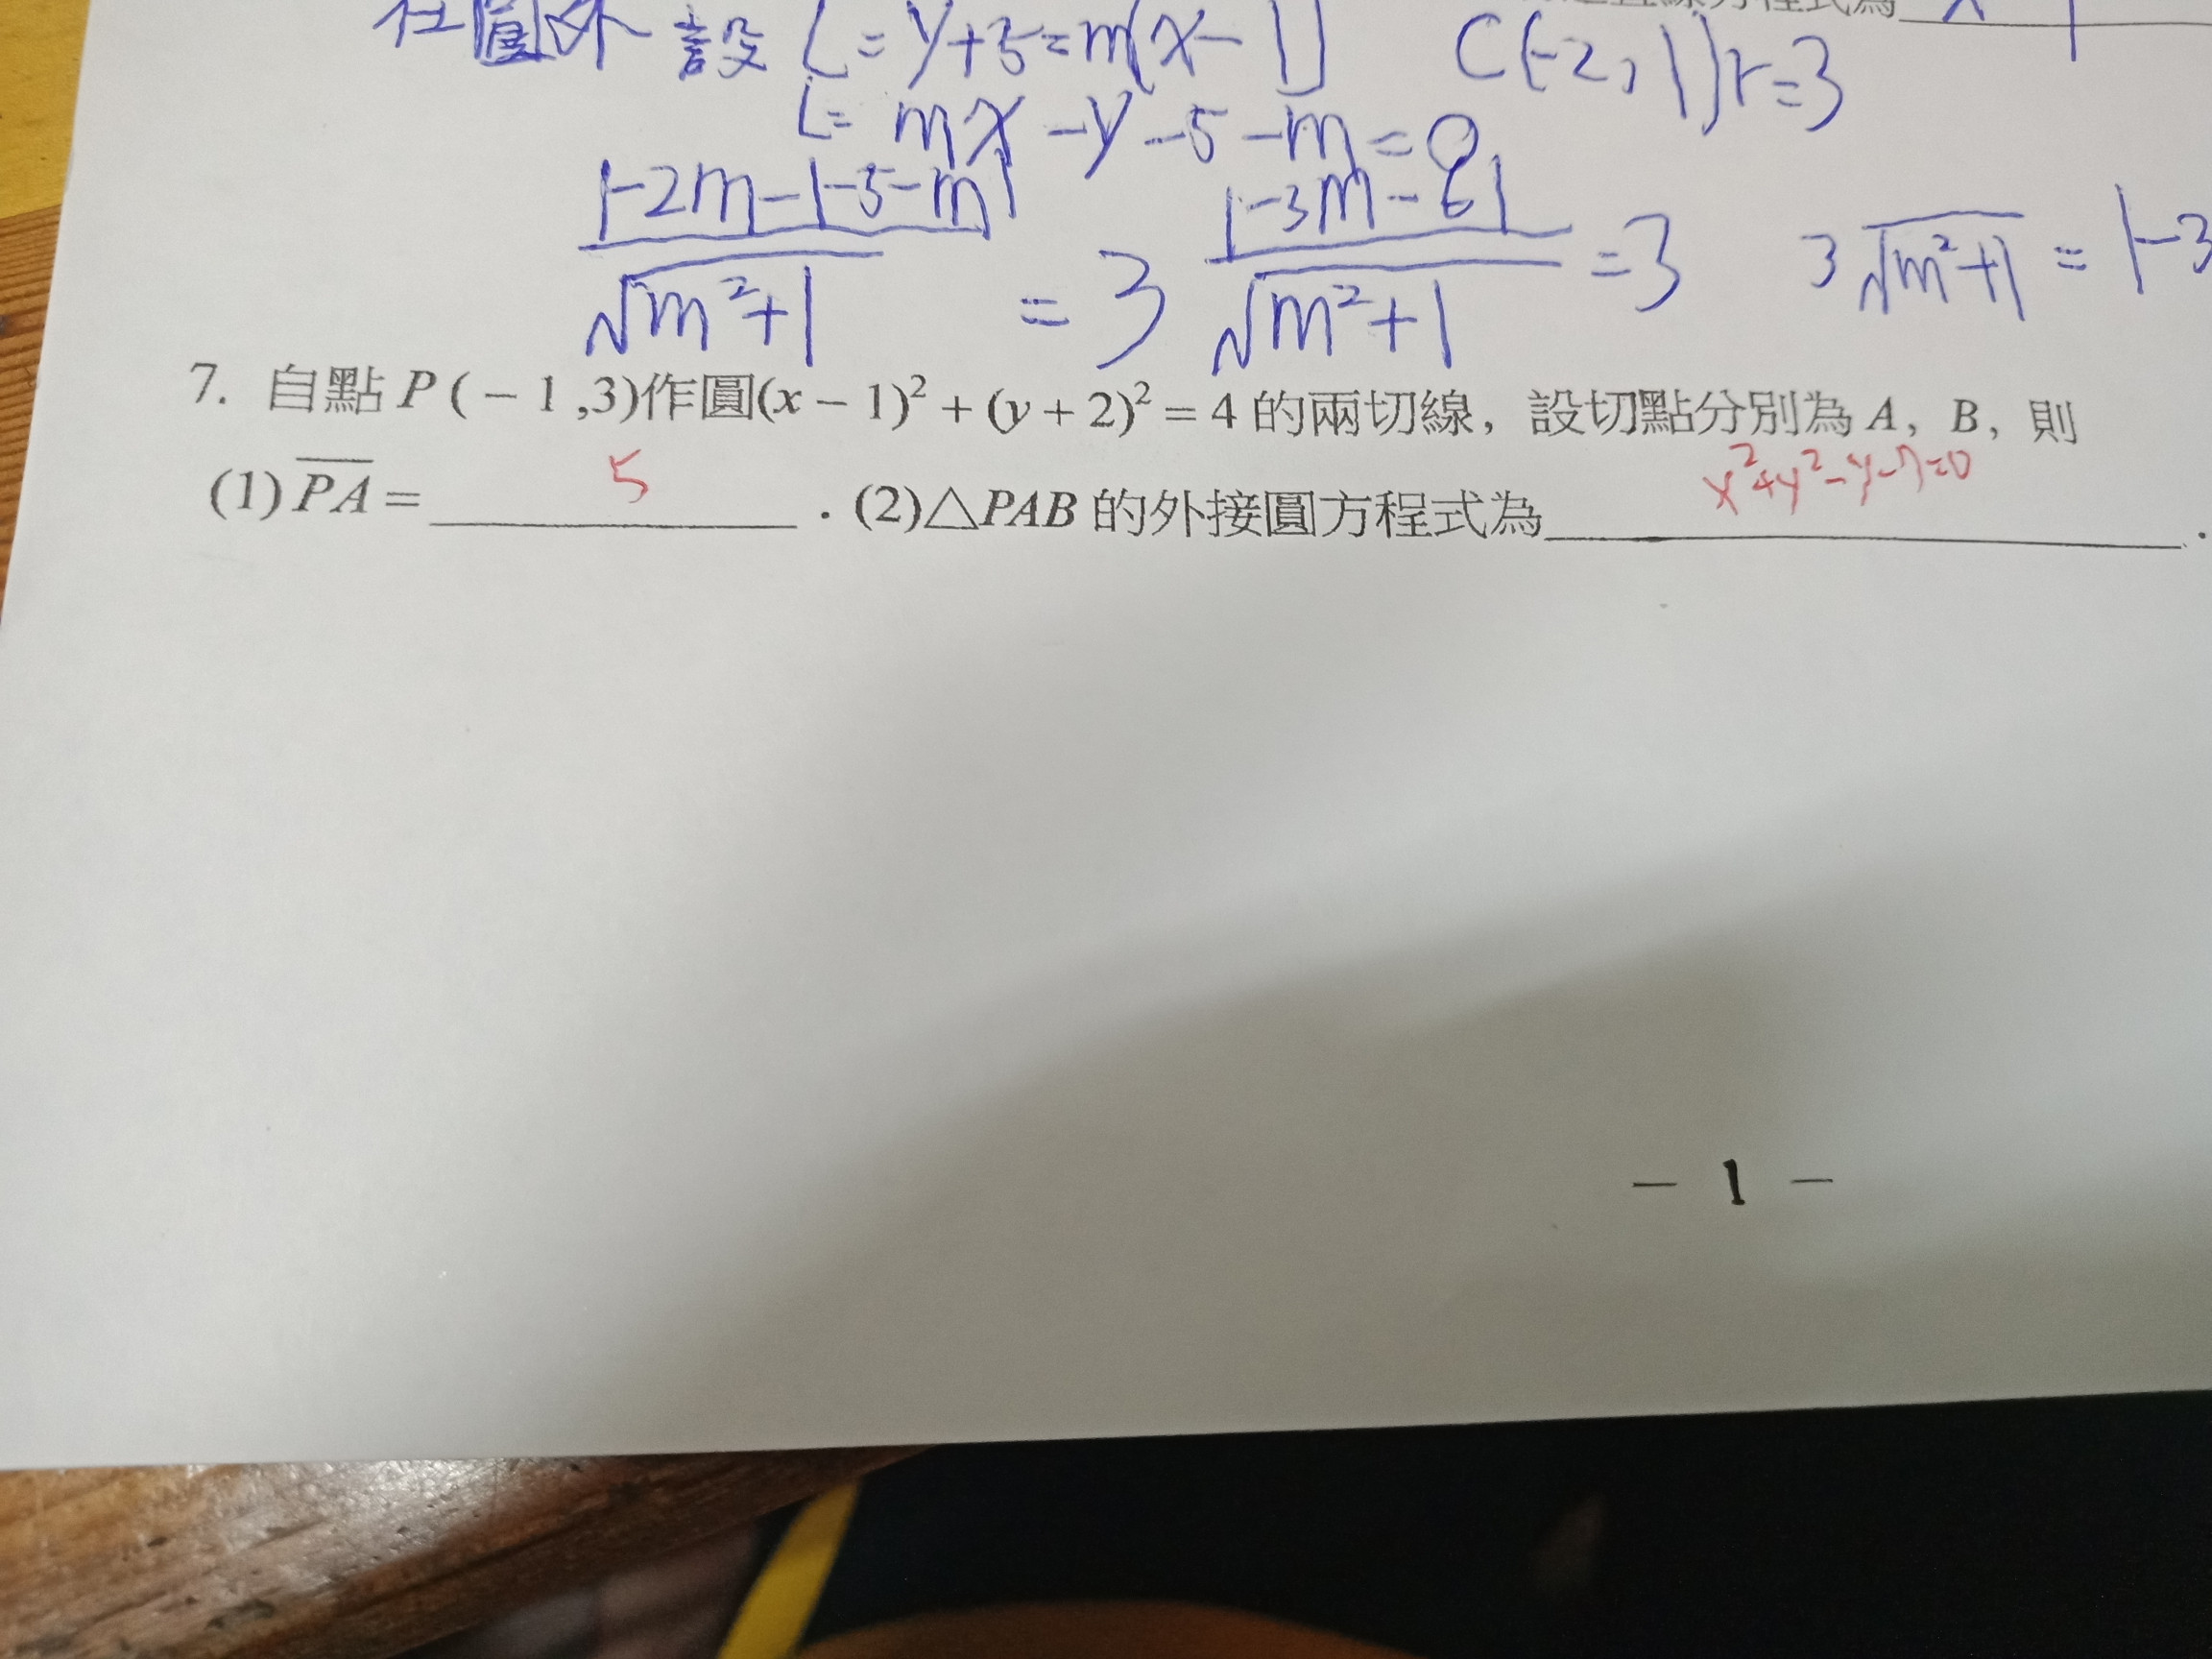 在圓外 設 L = y+5=m(x-1) C(-2,1) r=3
L= mx -y -5 -m = 0
|-2m-1-5-m| / √m²+1 = 3 |-3m-6| / √m²+1 =3 3√m²+1 = |-3
7. 自點 P ( − 1 ,3)作圓(x − 1)² + (y + 2)² = 4 的兩切線，設切點分別為 A，B，則
(1) PA = 5 . (2)△PAB 的外接圓方程式為 x²+y²-y-7=0 .
− 1 −